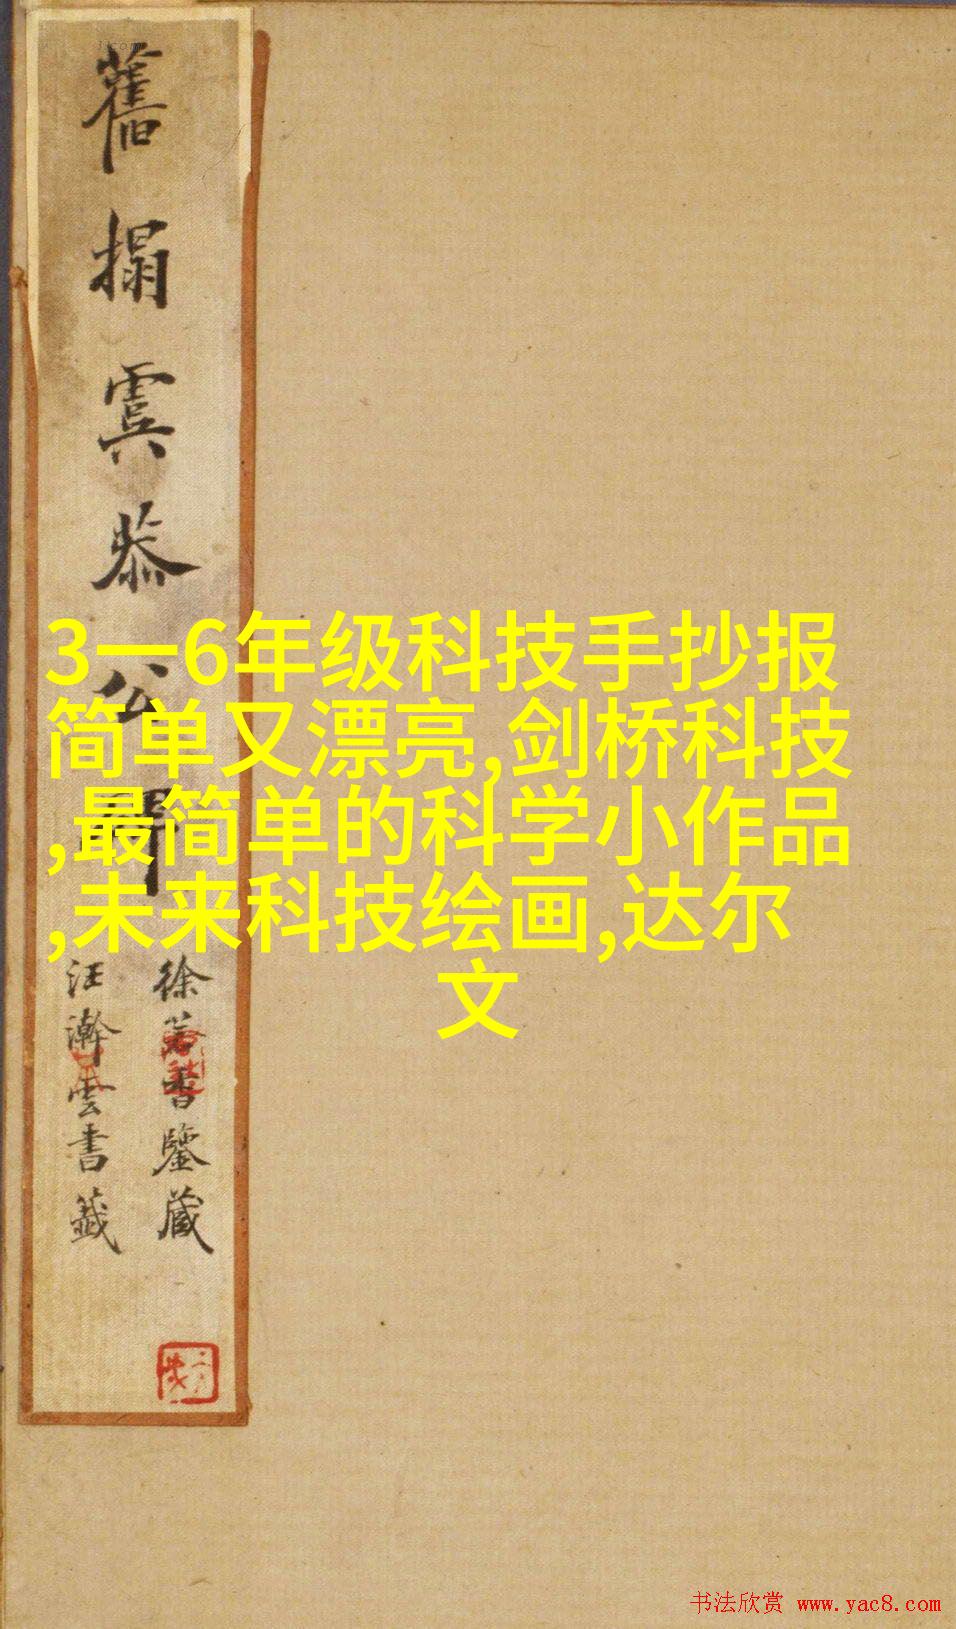 舊搨虞恭公碑
徐若書鑒藏
汪澣雲書籤
3一6年级科技手抄报
简单又漂亮,剑桥科技
,最简单的科学小作品
,未来科技绘画,达尔
文
书法欣赏 www.yac8.com